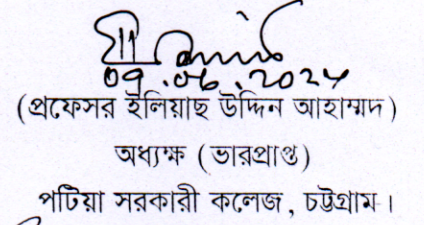 09.06.2024
(প্রফেসর ইলিয়াছ উদ্দিন আহাম্মদ)
অধ্যক্ষ (ভারপ্রাপ্ত)
পটিয়া সরকারী কলেজ, চট্টগ্রাম।